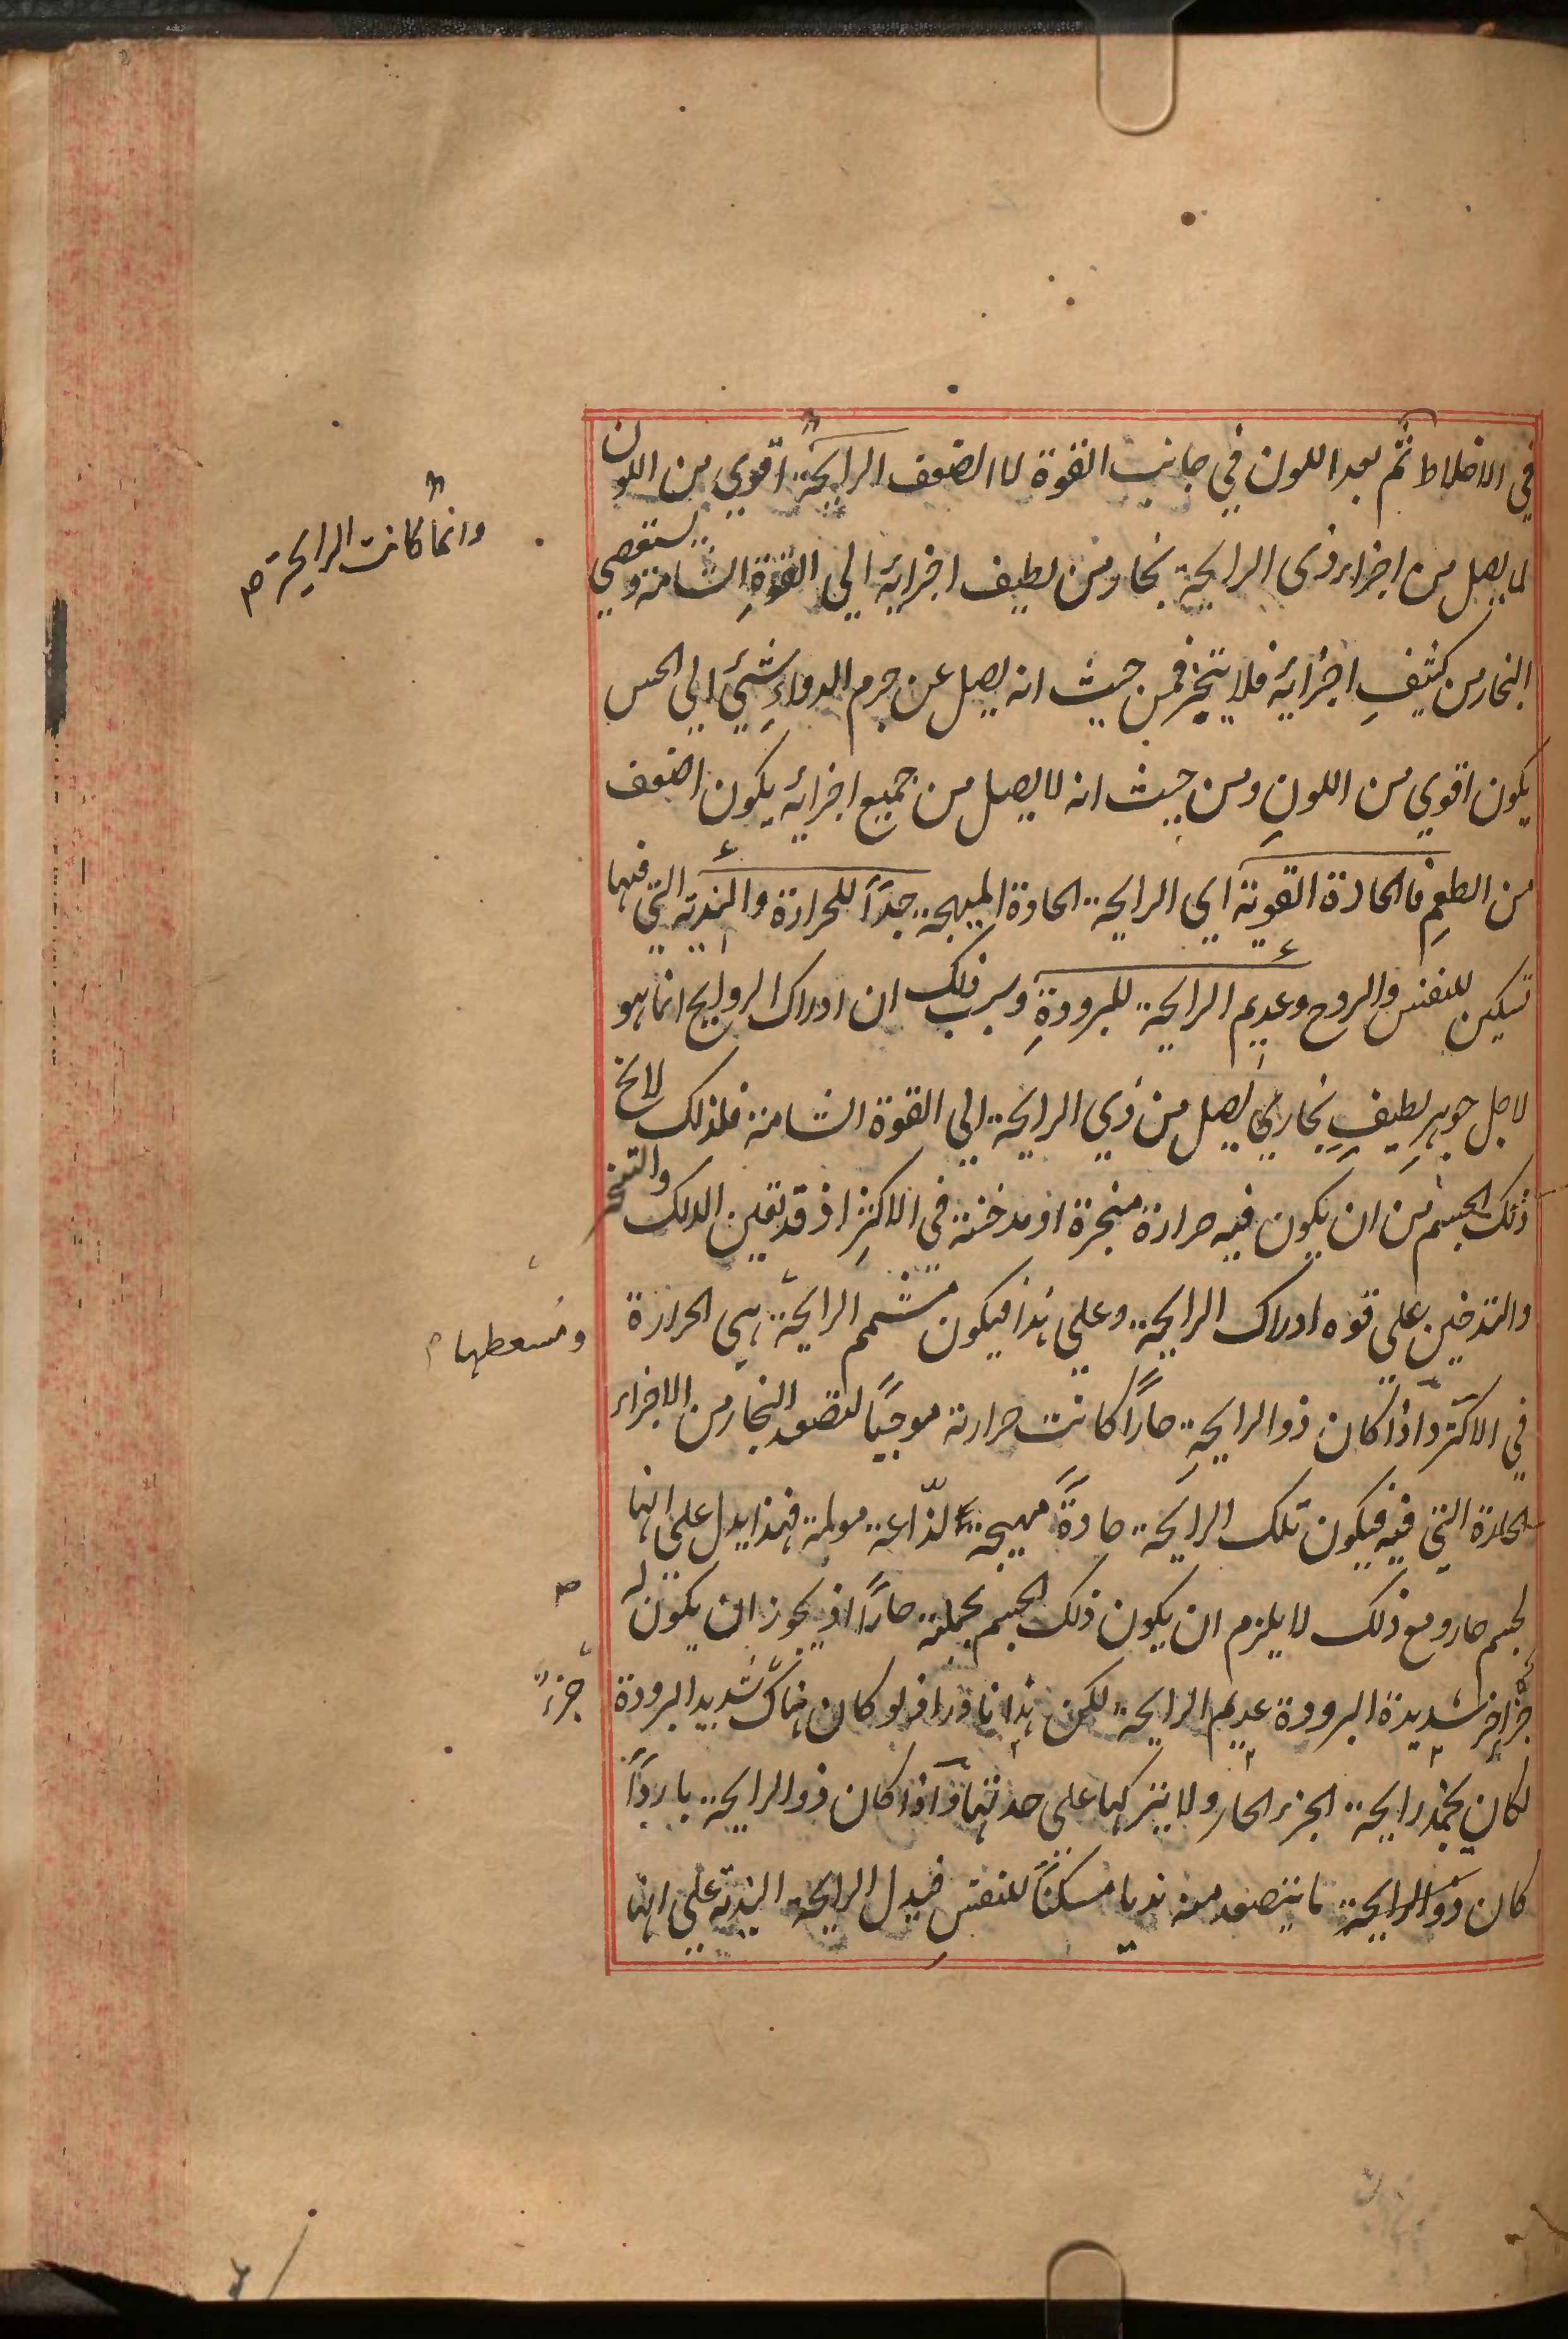 في الاخلاط ثم بعد اللون في جانب القوة لا الضعف الرايحة اقوي من اللون
لما يصل من اجزاء ذى الرايحة بخار من لطيف اجزايه الي القوة الشامة ويستقصي
البخار من كثيفِ اجزايه فلا يتبخر فمن حيث انه يصل عن جرم الدواءِ شيئ الي الحس
يكون اقوي من اللونِ ومن حيث انه لا يصل من جميع اجزايه يكون اضعف
من الطعمِ فالحادة القوية اي الرايحة الحادة المهيجة جدًا للحرارة والندية التي فيها
تسكين للنفس والروح وعديم الرايحة للبرودةِ وسبب ذلك ان ادراك الروايح انما هو
لاجل جوهرٍ لطيفٍ بخاري يصل من ذي الرايحة الي القوة الشامة فلذلك لا يخ
ذلك الجسم من ان يكون فيه حرارة مبخرة او مدخنة في الاكثر اذ قد تعين الدلك والتبخر
والتدخين علي قوه ادراك الرايحة وعلي هذا فيكون مشمم الرايحة هي الحرارة
في الاكثر واذا كان ذو الرايحةِ حارًا كانت حرارته موجبًا لتصعد البخار من الاجزاء
الحادة التي فيه فيكون تلك الرايحة حادةً مهيجة لذّاعة مولمة فهذا يدل علي انها
لجسم حار ومع ذلك لا يلزم ان يكون ذلك الجسم بجملته حارًا اذ يجوز ان يكون له
جزء اخر شديدة البرودة عديم الرايحة لكن هذا نادر اذ لو كان هناك شديد البرودة
لكان يخمد رايحة الجزء الحار ولا يتركها علي حدتها واذا كان ذو الرايحة باردًا
كان ذو الرايحة ما يتصعد منه نديا مسكنًا للنفس فيدل الرايحة الندية علي انها
وانما كانت الرايحة م
ومسعطها م
جزء